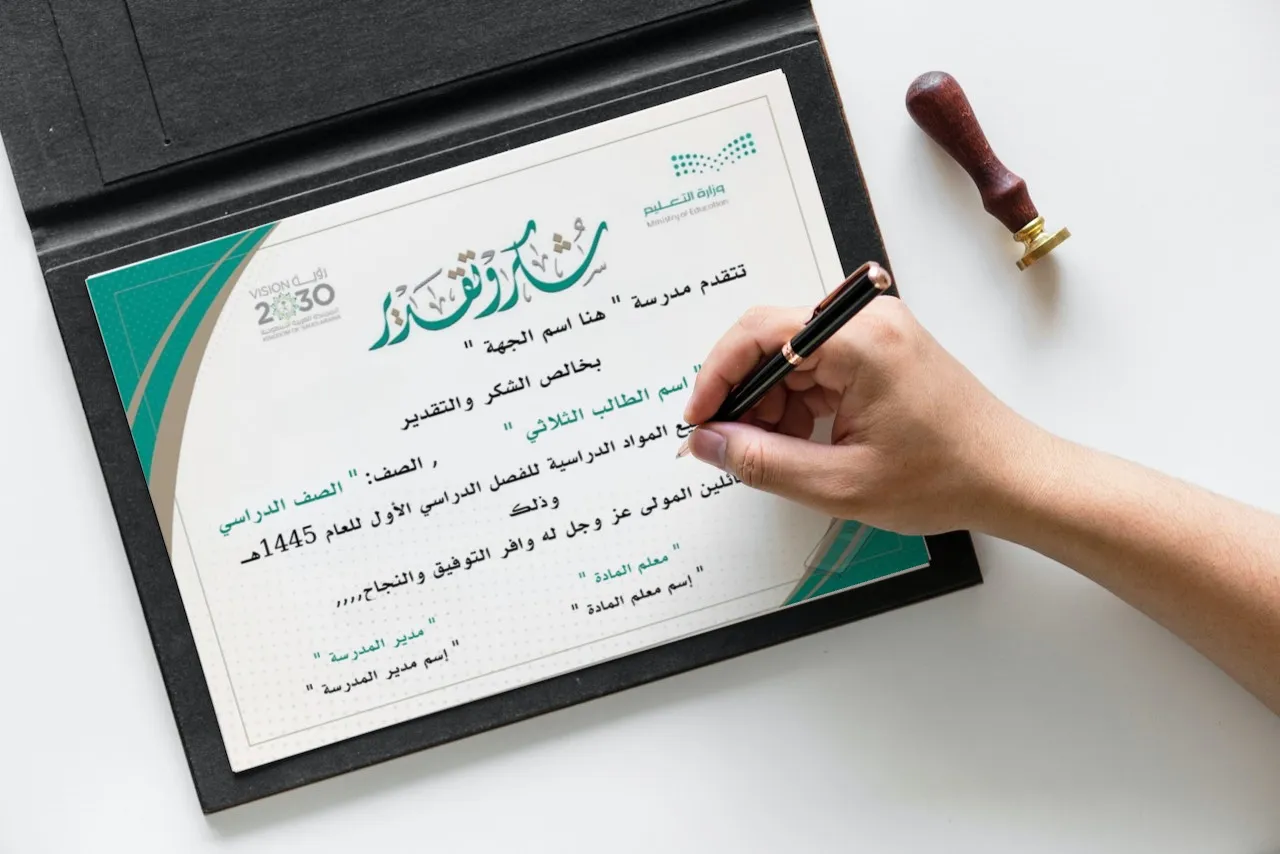 وزارة التعليم
Ministry of Education
رؤيـة
VISION
2030
المملكة العربية السعودية
KINGDOM OF SAUDI ARABIA
شكر وتقدير
تتقدم مدرسة " هنا اسم الجهة "
بخالص الشكر والتقدير
" اسم الطالب الثلاثي " , الصف: " الصف الدراسي
المواد الدراسية للفصل الدراسي الأول للعام 1445هـ
وذلك
المولى عز وجل له وافر التوفيق والنجاح,,,,
" معلم المادة "
" إسم معلم المادة "
" مدير المدرسة "
" إسم مدير المدرسة "